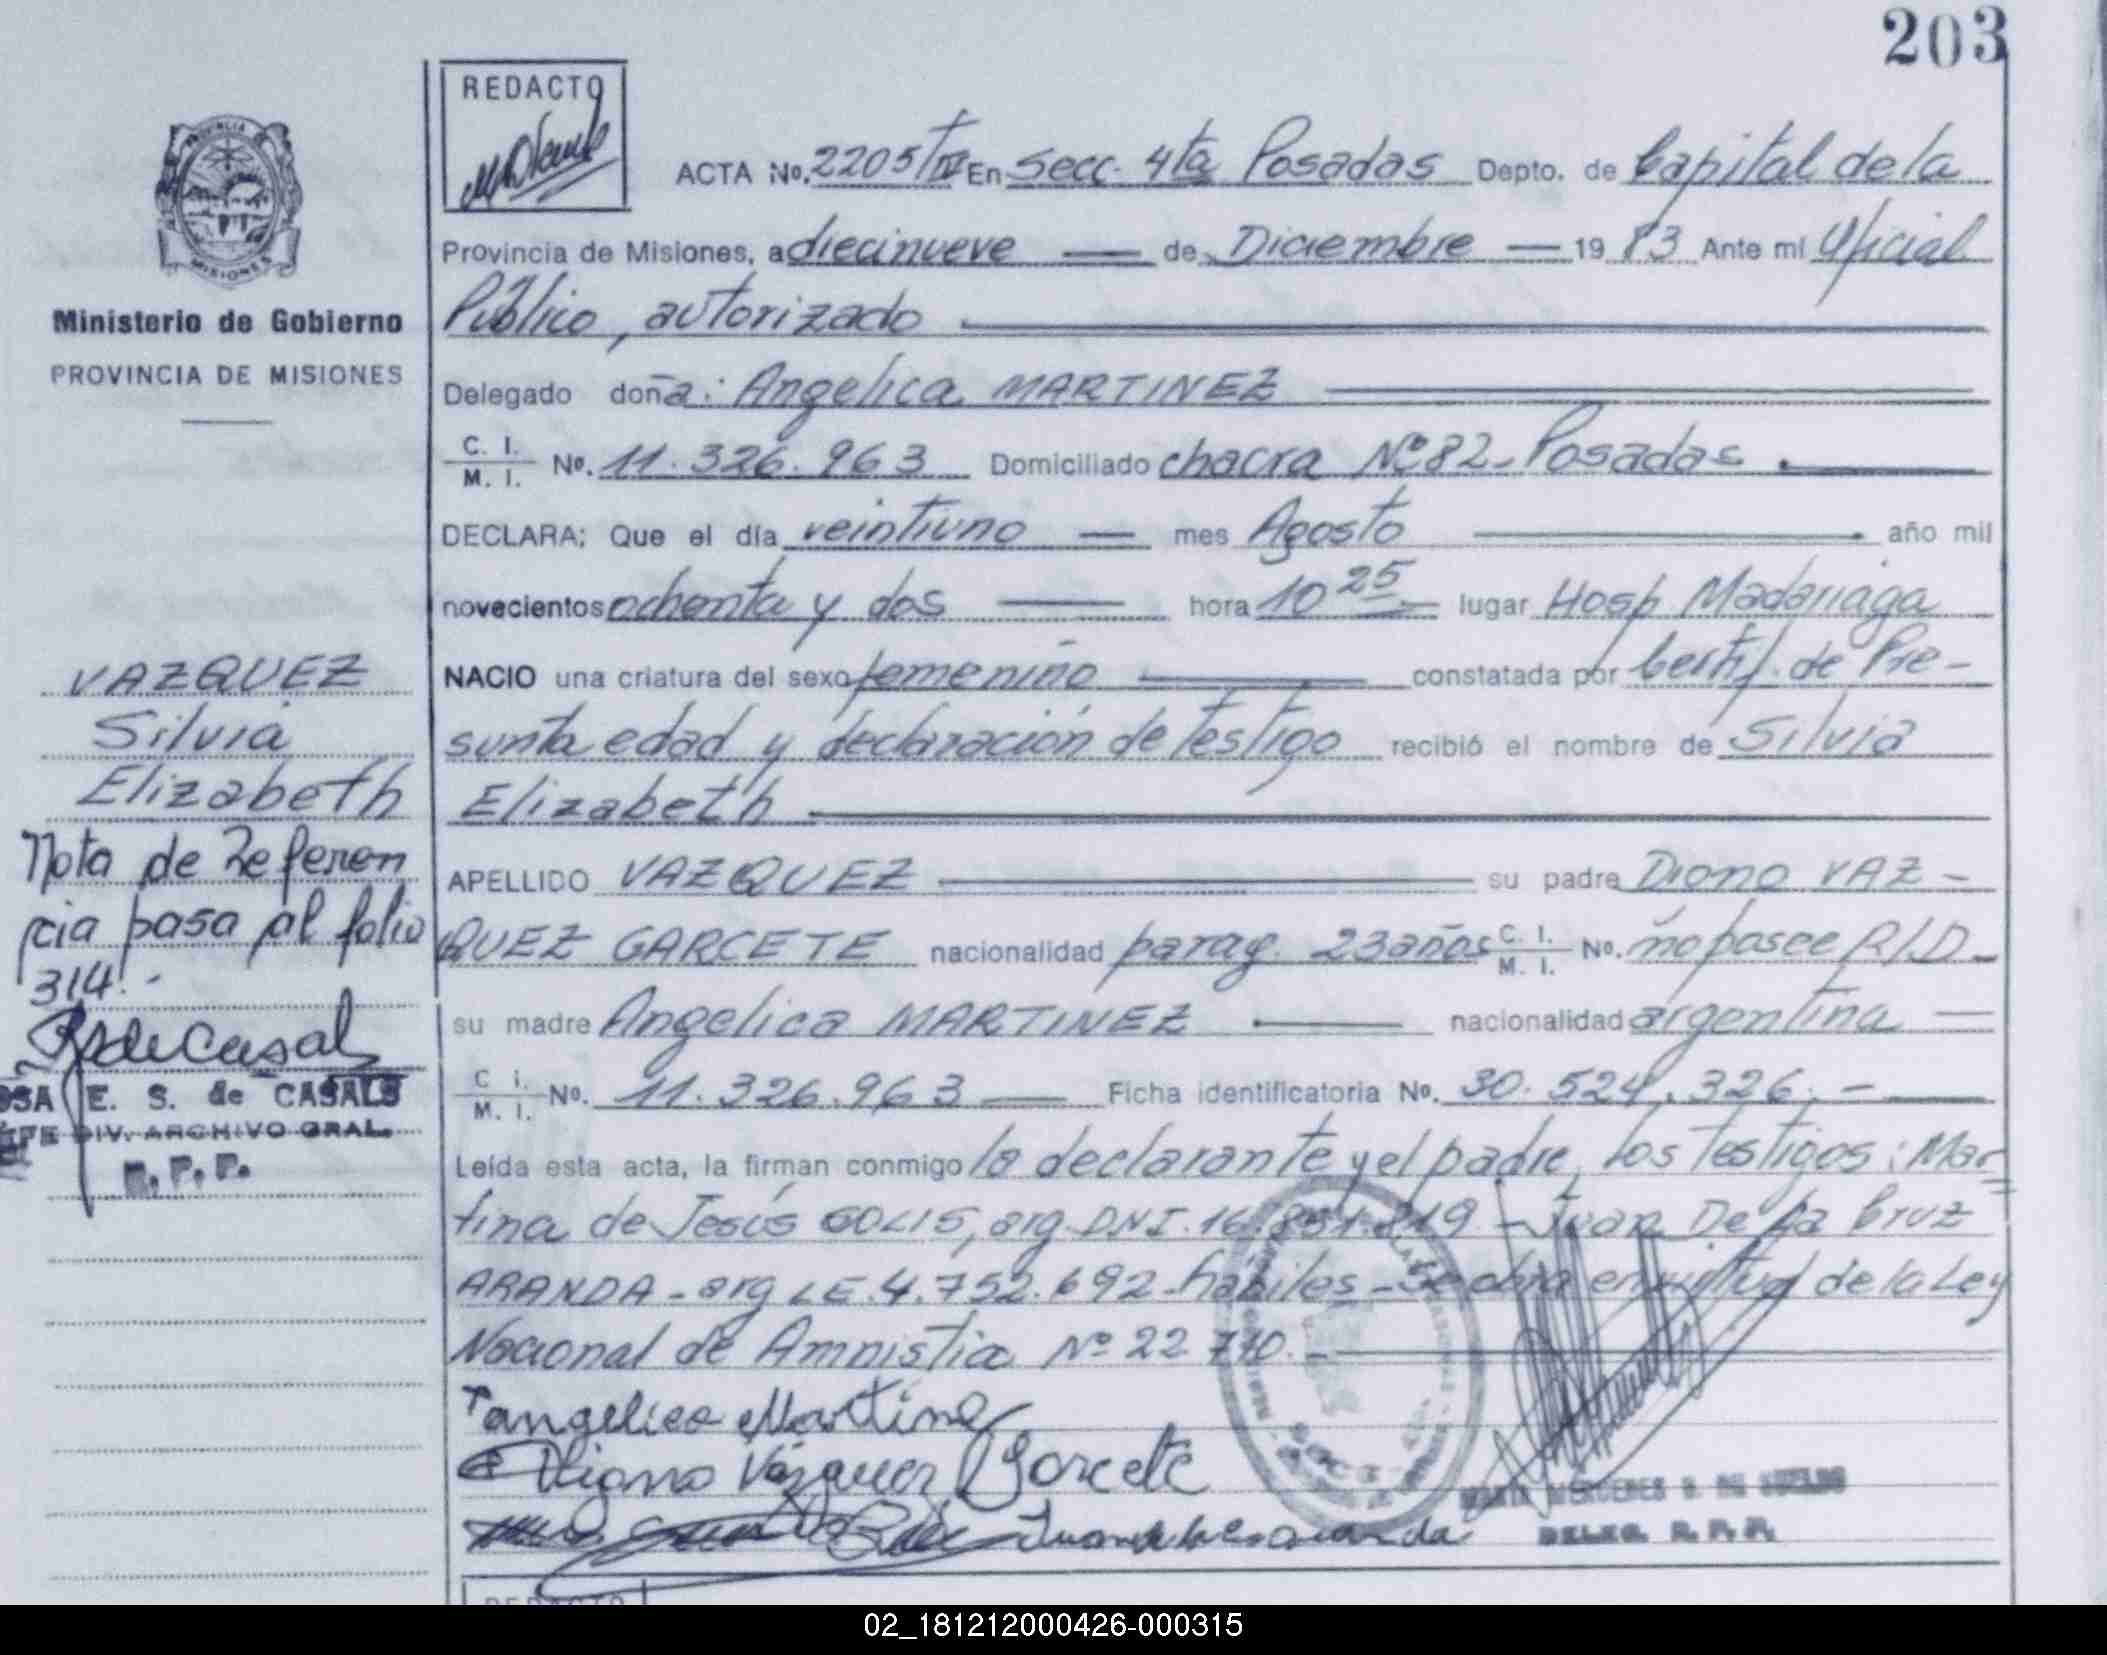 203
REDACTO
ACTA No. 2205/IV En Secc. 4ta Posadas Depto. de Capital de la
Provincia de Misiones, a diecinueve — de Diciembre — 19 83 Ante mí Oficial
Público, autorizado
Delegado doña: Angelica MARTINEZ
C. I. / M. I. No. 11.326.963 Domiciliado chacra Nº 82 - Posadas.
DECLARA: Que el día veintiuno — mes Agosto — año mil
novecientos ochenta y dos — hora 10 25 lugar Hosp Madariaga
NACIO una criatura del sexo femenino — constatada por Certif. de Pre-
sunta edad y declaración de testigo recibió el nombre de Silvia
Elizabeth
APELLIDO VAZQUEZ — su padre Diono VAZ-
QUEZ GARCETE nacionalidad parag. 23 años C. I. / M. I. No. no posee R/D -
su madre Angelica MARTINEZ — nacionalidad argentina —
C. I. / M. I. No. 11.326.963 — Ficha identificatoria No. 30.524.326. -
Leída esta acta, la firman conmigo la declarante y el padre, los testigos: Mar-
tina de Jesús SOLIS, arg DNI. 16. - Juan De la Cruz
ARANDA - arg LE. 4.752.692 - hábiles - Se labra en virtud de la Ley
Nacional de Amnistia Nº 22
angelica Martinez
Diono Vázquez Garcete
Juan de la Cruz aranda
DELEG. R. P. P.
PROVINCIA DE
MISIONES
Ministerio de Gobierno
PROVINCIA DE MISIONES
VAZQUEZ
Silvia
Elizabeth
Nota de Referen
cia pasa al folio
314.-
R S de Casals
OSA E. S. de CASALS
EFE DIV. ARCHIVO GRAL.
R. P. P.
REDACTO
02_181212000426-000315